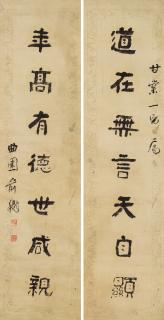 甘
道在無言天自顯
年高有德世咸親
曲園俞樾